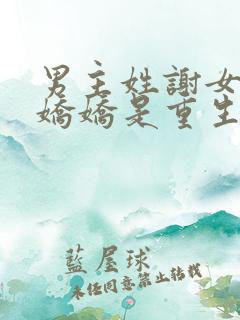 男主姓謝女
嬌嬌是重生
藍屋球
未經同意禁止轉載